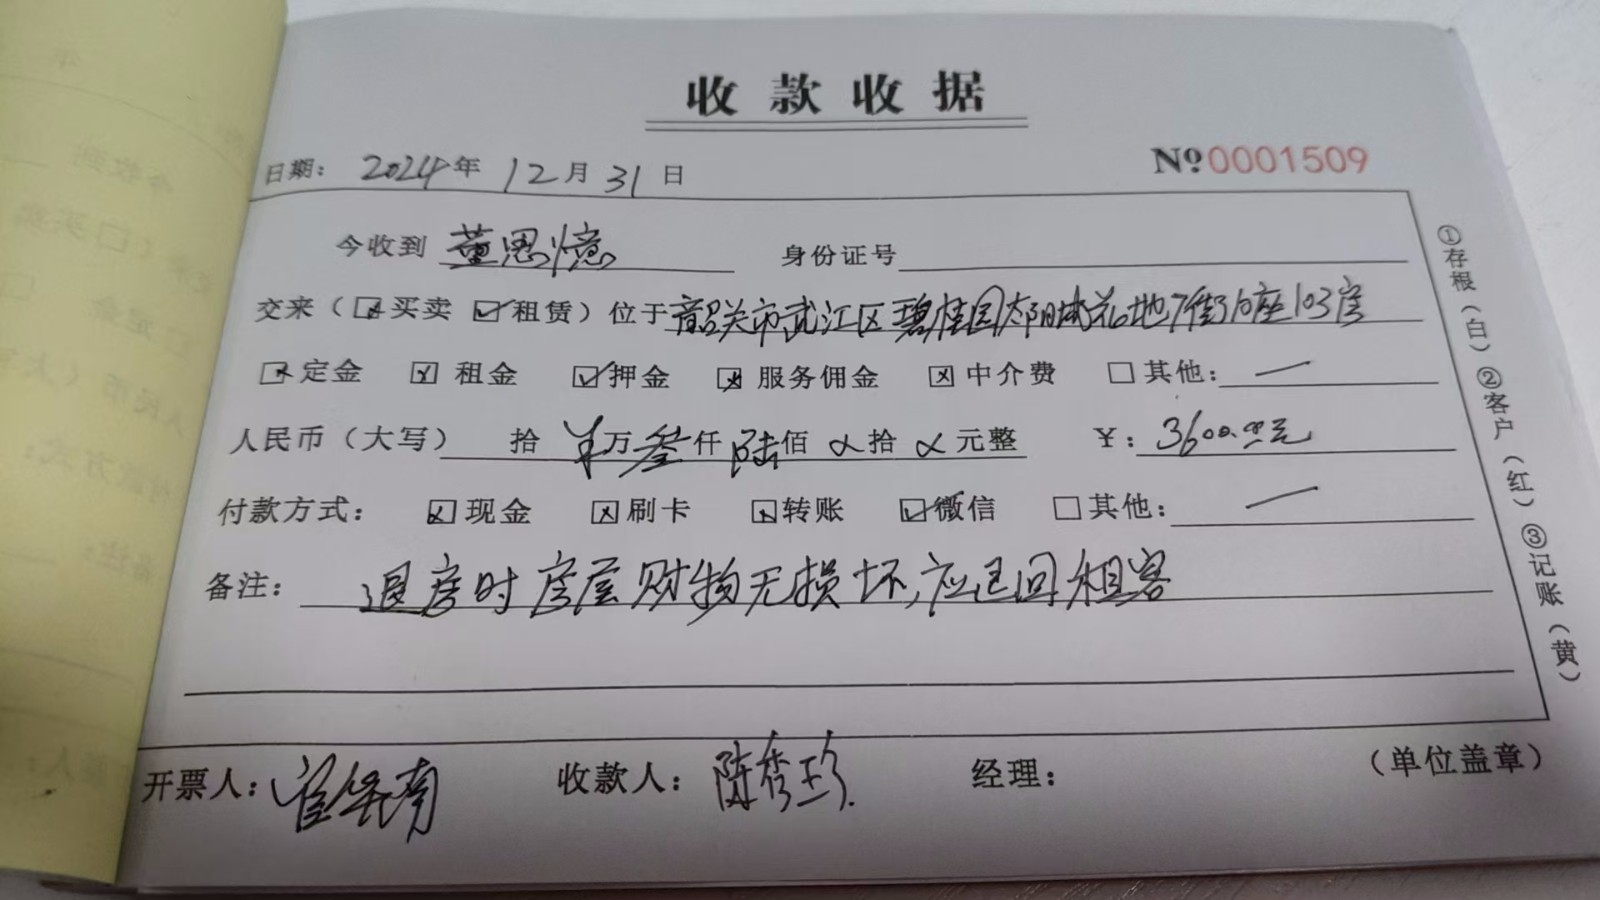 收款收据
日期： 2024年 12月 31日 №0001509
今收到 董思憶 身份证号
交来（☒买卖 ☑租赁）位于韶关市武江区碧桂园太阳城花地1街10座103房
☒定金 ☒租金 ☑押金 ☒服务佣金 ☒中介费 □其他：—
人民币（大写） 拾 万叁仟陆佰 拾 元整 ￥：3600.00元
付款方式： ☒现金 ☒刷卡 ☒转账 ☑微信 □其他：—
备注： 退房时房屋财物无损坏,应退回租客
开票人： 收款人：陈秀珍 经理： （单位盖章）
①存根（白）②客户（红）③记账（黄）